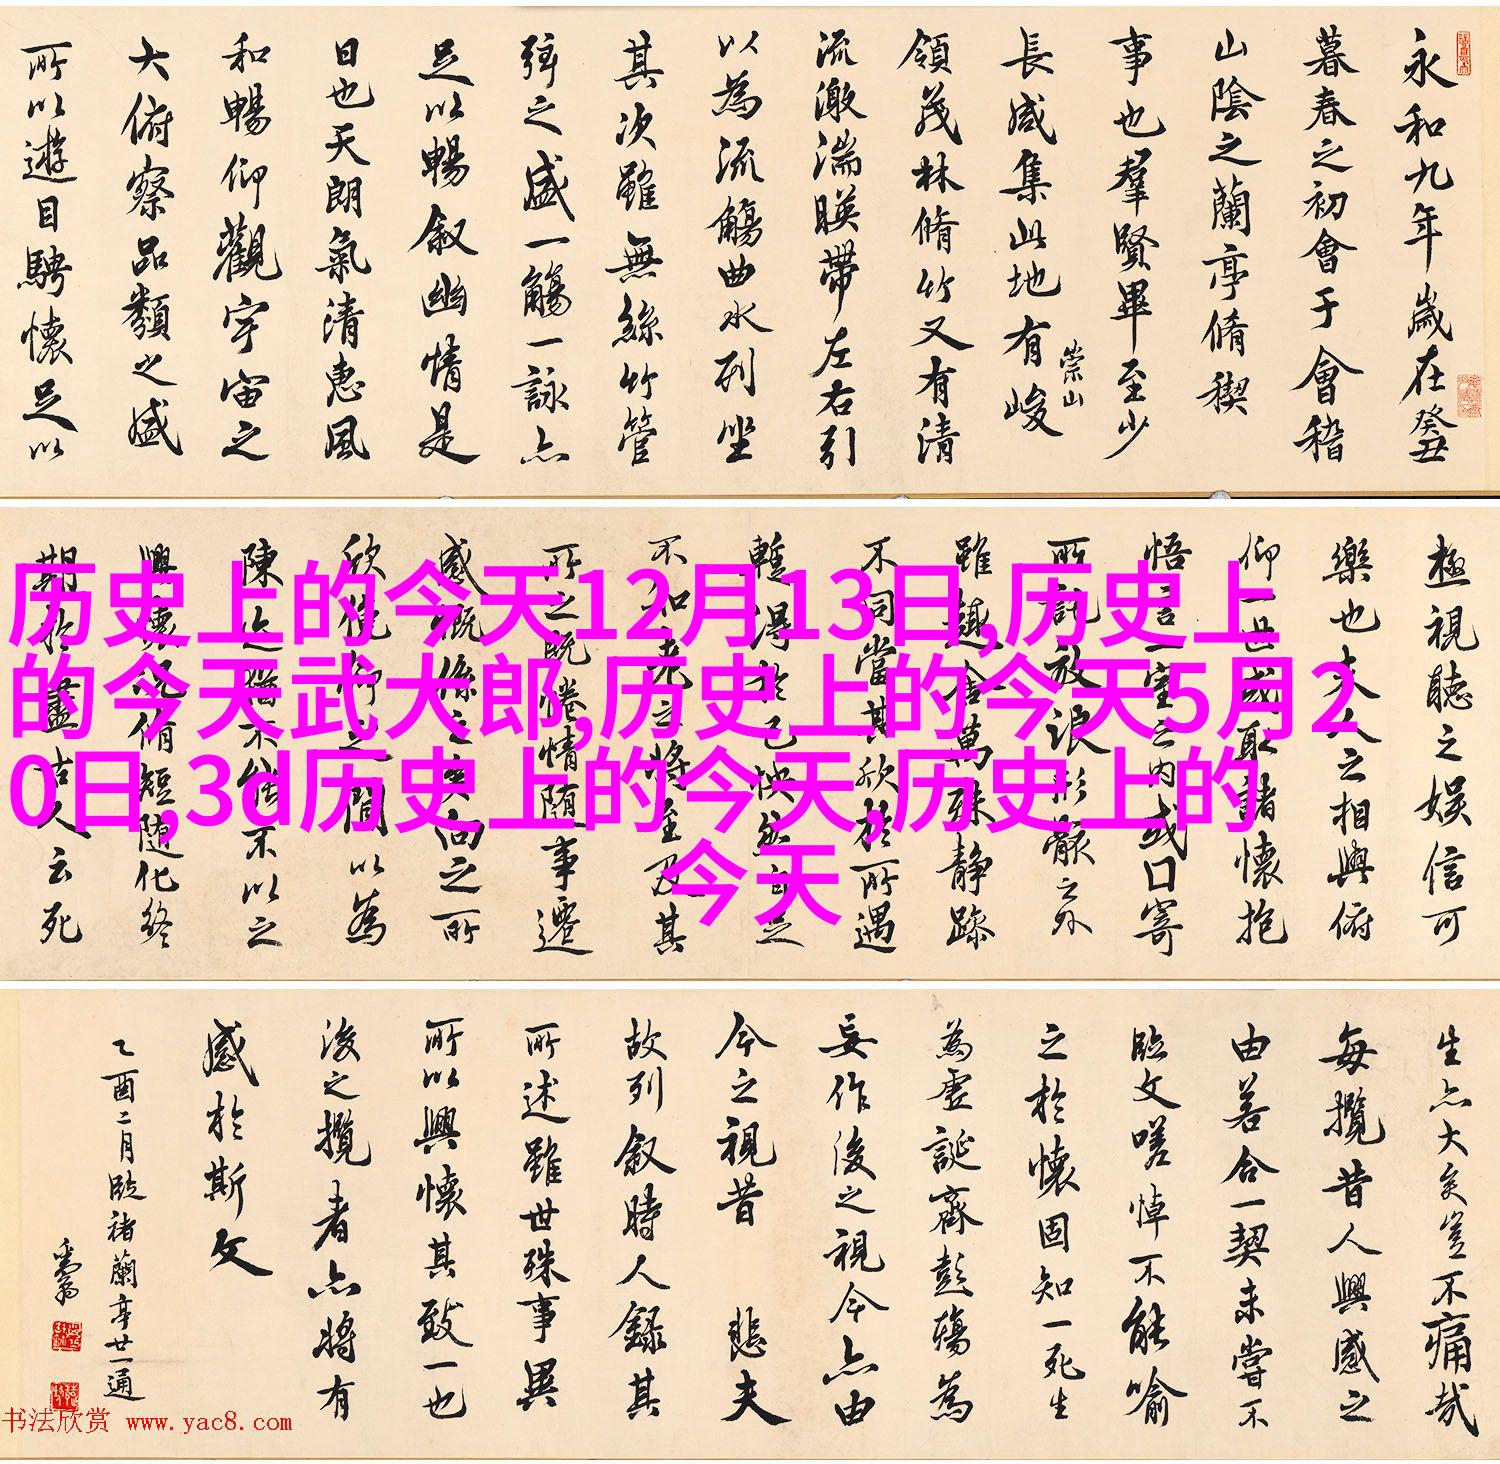 永和九年歲在癸丑
暮春之初會于會稽
山陰之蘭亭脩稧
事也羣賢畢至少
長咸集此地有峻
崇山
領茂林脩竹又有清
流激湍暎帶左右引
以為流觴曲水列坐
其次雖無絲竹管
弦之盛一觴一詠亦
足以暢叙幽情是
日也天朗氣清惠風
和暢仰觀宇宙之
大俯察品類之盛
所以遊目騁懷足以
極視聽之娛信可
樂也夫人之相與俯
仰一世或取諸懷抱
悟言一室之內或口寄
所託放浪形骸之外
雖趣舍萬殊靜躁
不同當其欣於所遇
暫得於己快然自足
不知老之將至及其
所之既惓情隨事遷
感慨係之矣向之所
欣俛仰之間以為
陳迹猶不能不以之
興懷況脩短隨化終
期於盡古人云死
历史上的今天12月13日,历史上
的今天武大郎,历史上的今天5月2
0日,3d历史上的今天,历史上的
今天
生亦大矣豈不痛哉
每攬昔人興感之
由若合一契未嘗不
臨文嗟悼不能喻
之於懷固知一死生
為虛誕齊彭殤為
妄作後之視今亦由
今之視昔 悲夫
故列叙時人錄其
所述雖世殊事異
所以興懷其致一也
後之攬者亦將有
感於斯文
乙酉二月臨褚蘭亭廿一通
书法欣赏 www.yac8.com